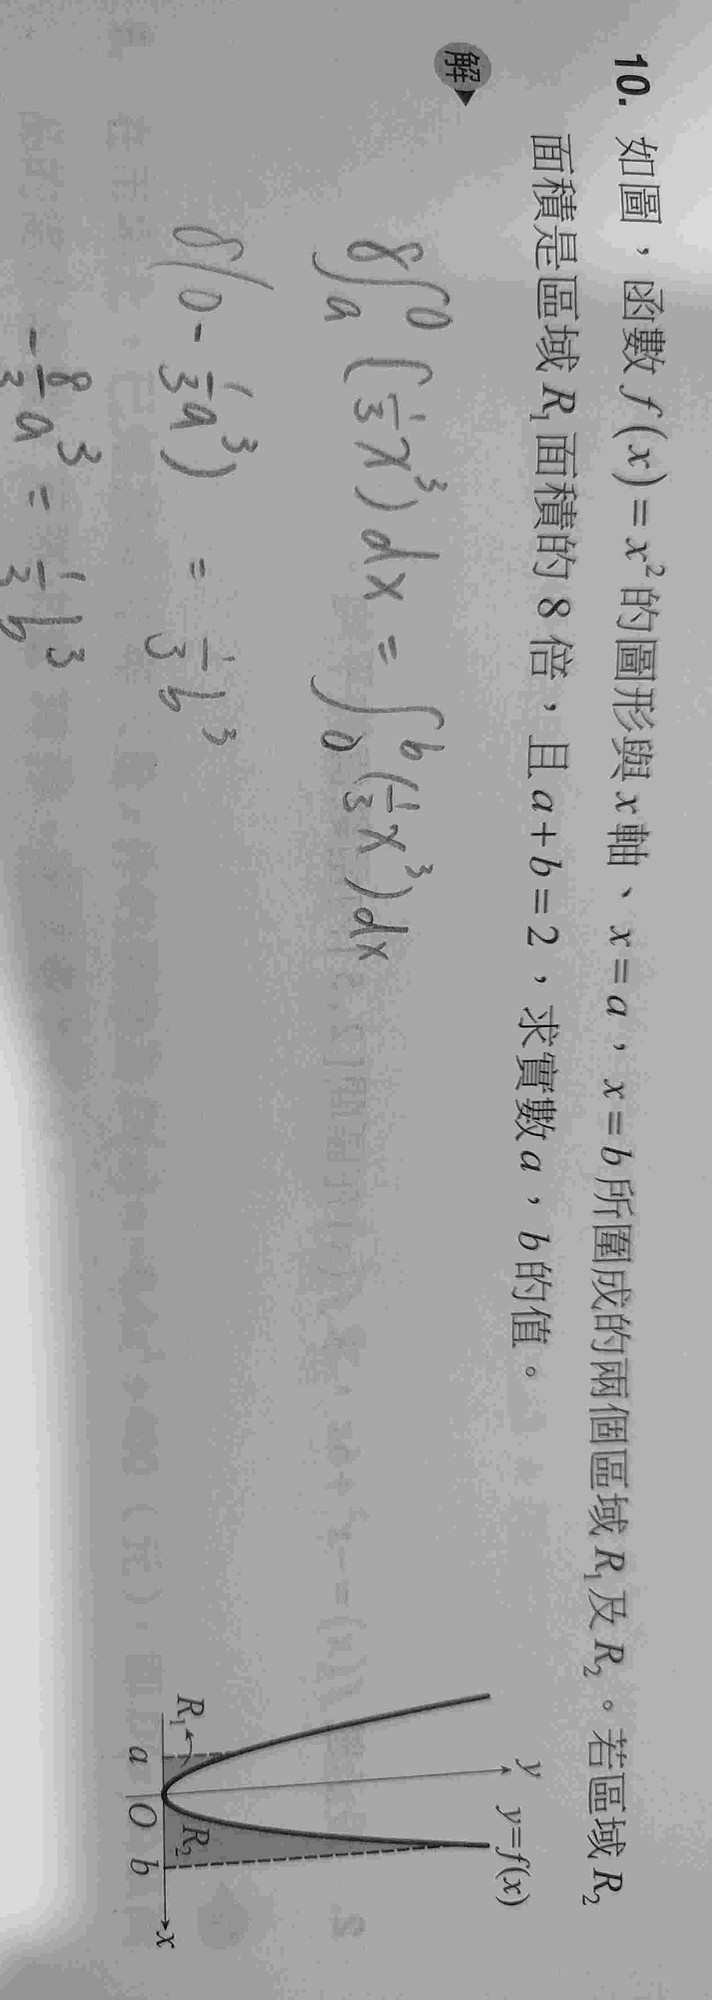 10. 如圖，函數 f(x)=x²的圖形與 x 軸、x=a，x=b 所圍成的兩個區域 R₁及 R₂。若區域 R₂
面積是區域 R₁面積的 8 倍，且 a+b=2，求實數 a，b 的值。
解
8∫ₐ⁰ (1/3 x³) dx = ∫₀ᵇ (1/3 x³) dx
8(0 - 1/3 a³) = 1/3 b³
-8/3 a³ = 1/3 b³
y
y=f(x)
R₁
R₂
a O b x